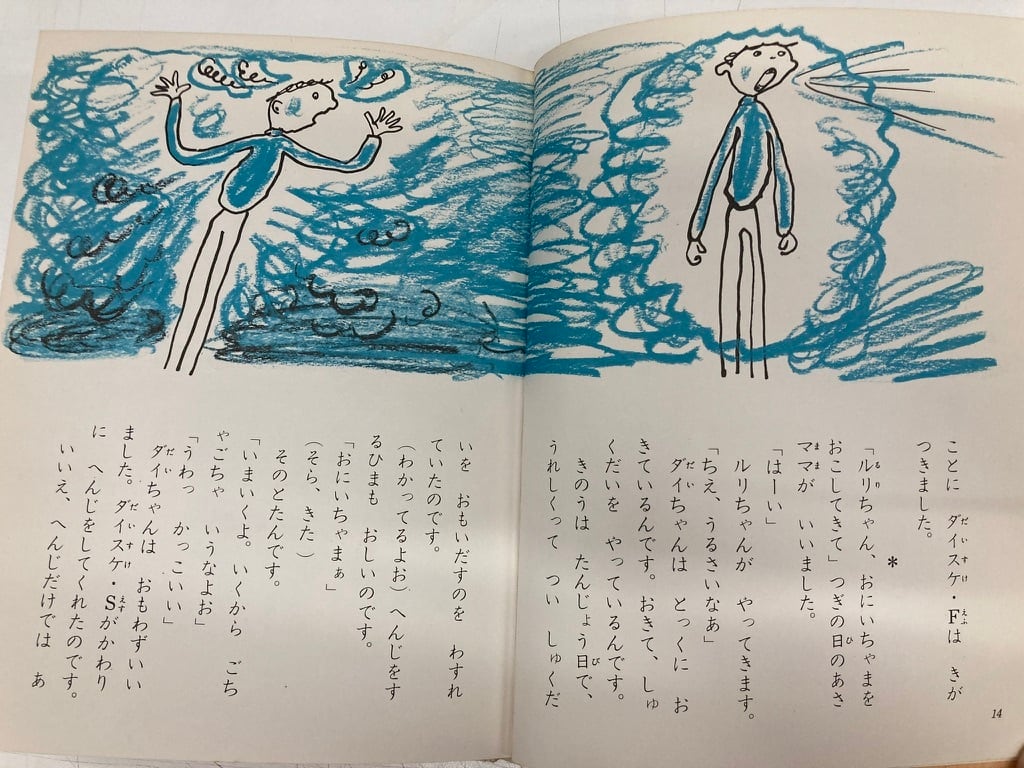 ことに　ダイスケ・Fは　きが
つきました。
＊
「ルリちゃん、おにいちゃまを
おこしてきて」つぎの日のあさ
ママが　いいました。
「はーい」
ルリちゃんが　やってきます。
「ちえ、うるさいなぁ」
ダイちゃんは　とっくに　お
きているんです。おきて、しゅ
くだいを　やっているんです。
きのうは　たんじょう日で、
うれしくって　つい　しゅくだ
14
いを　おもいだすのを　わすれ
ていたのです。
（わかってるよお）へんじをす
るひまも　おしいのです。
「おにいちゃまぁ」
（そら、きた）
そのとたんです。
「いまいくよ。いくから　ごち
ゃごちゃ　いうなよお」
「うわっ　かっこいい」
ダイちゃんは　おもわずいい
ました。ダイスケ・Sがかわり
に　へんじをしてくれたのです。
いいえ、へんじだけでは　あ